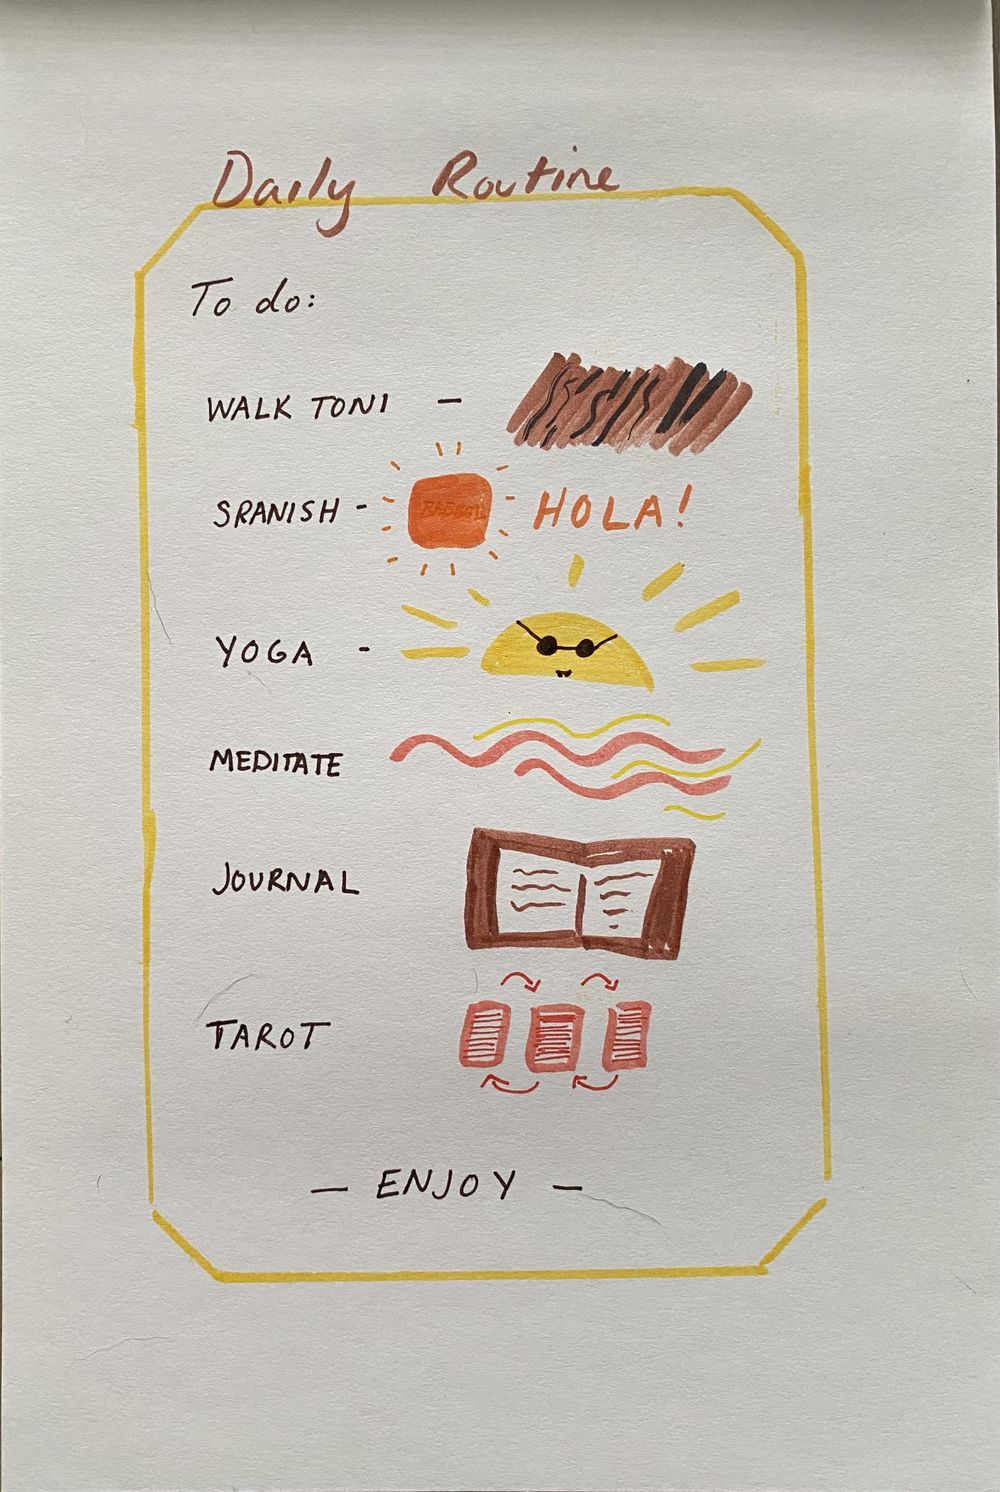 Daily Routine
To do:
WALK TONI –
SPANISH - HOLA!
YOGA -
MEDITATE
JOURNAL
TAROT
– ENJOY –